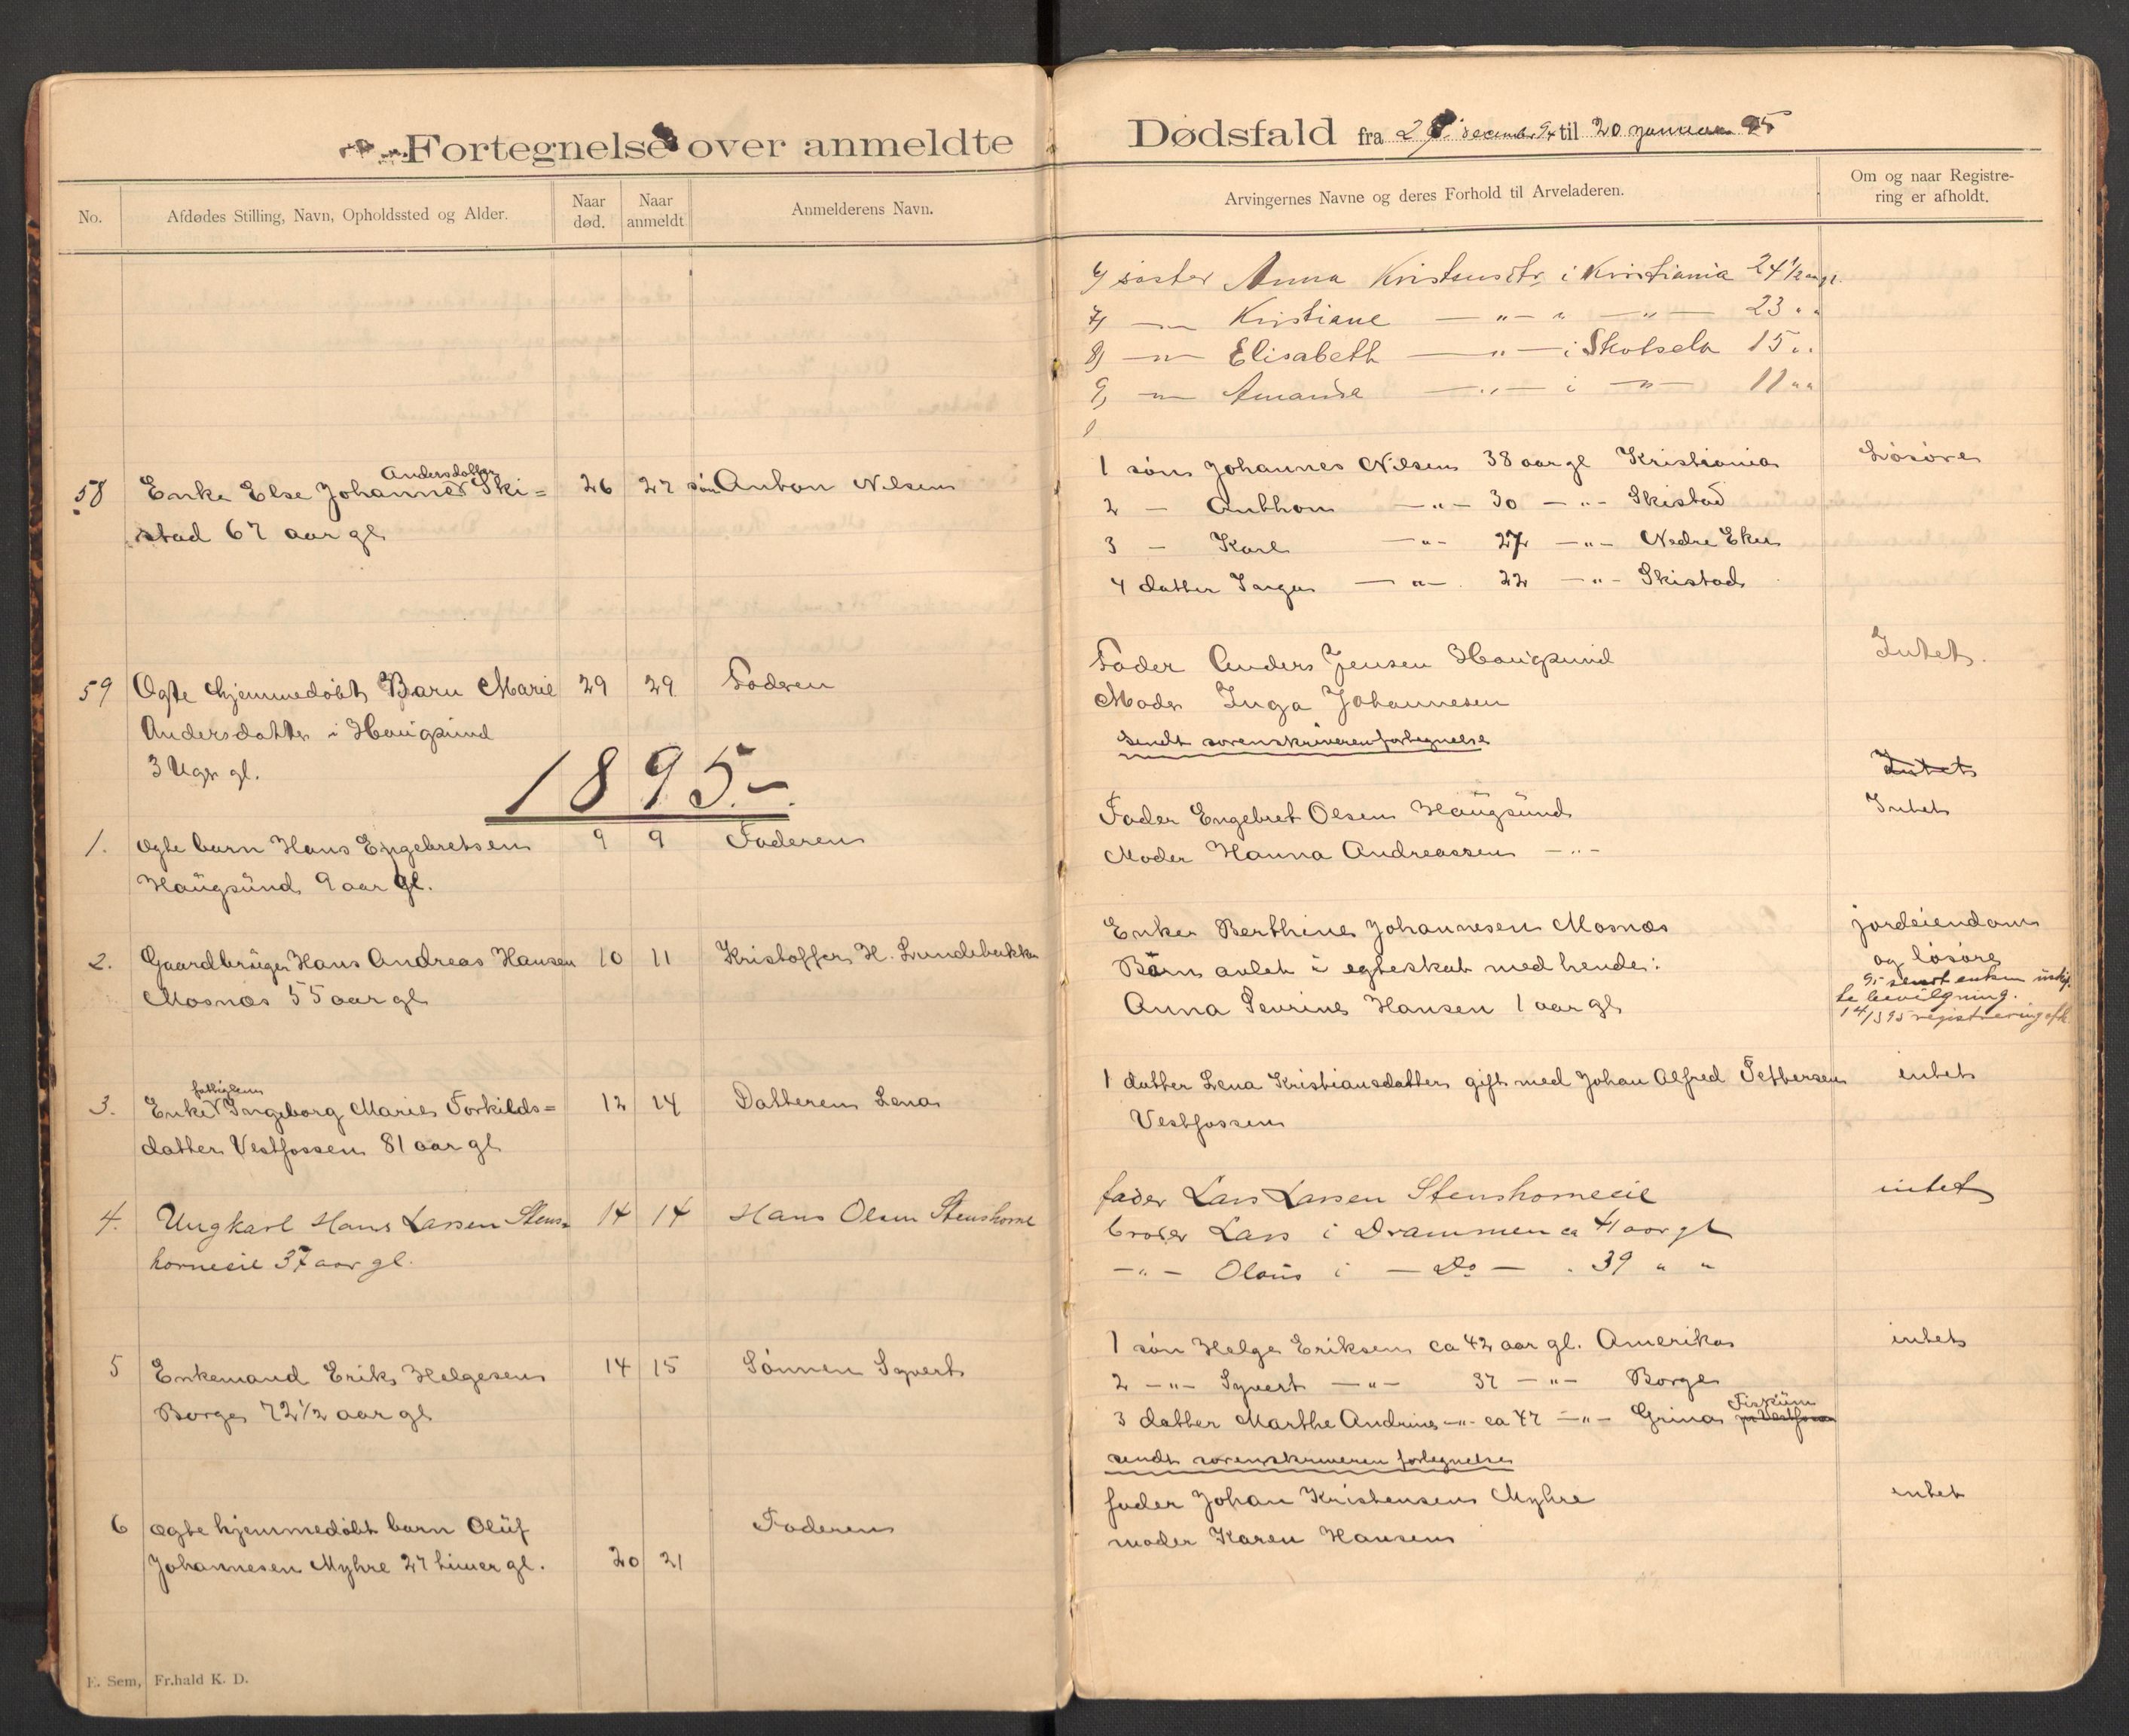 Fortegnelse over anmeldte Dødsfald fra december 94 til 20 januar 95
No.
Afdødes Stilling, Navn, Opholdssted og Alder.
Naar død.
Naar anmeldt
Anmelderens Navn.
Arvingernes Navne og deres Forhold til Arveladeren.
Om og naar Registre-
ring er afholdt.
6) søster Anna Kristensdtr. i Kristiania 24 1/2 aar gl.
7) —"— Kristiane —"— " —"— 23 " "
8) —"— Elisabeth —"— i Skotselv 15 " "
9) —"— Amanda —"— i —"— 11 " "
58 Enke Else Johanne Andersdatter Ski= 26 27 søn Anton Nilsen
stad 67 aar gl
1 søn Johannes Nilsen 38 aar gl Kristiania Løsøre
2 — Anthon —"— 30 —"— Skistad
3 — Karl —"— 27 —"— Nedre Eker
4 datter Inga —"— 22 —"— Skistad
59 Ægte hjemmedøbt Barn Marie 29 29 Faderen
Andersdatter i Haugsund
3 Uger gl.
Fader Anders Jensen Haugsund Intet.
Moder Inga Johannesen
Sendt sorenskriveren fortegnelse
1895.—
Intet
1. ægte barn Hans Engebretsen 9 9 Faderen
Haugsund 9 aar gl.
Fader Engebret Olsen Haugsund Intet
Moder Hanna Andreassen —"—
2. Gaardbruger Hans Andreas Hansen 10 11 Kristoffer H. Lundebakke
Mosnæs 55 aar gl
Enke Berthine Johannesen Mosnæs jordeiendom
Børn avlet i egteskab med hende: og løsøre
Anna Sevrine Hansen 1 aar gl
sendt enken
bevilgning.
registrering
3. Enke fattiglem Ingeborg Marie Torkilds= 12 14 Datteren Lena
datter Vestfossen 81 aar gl
1 datter Lena Kristiansdatter gift med Johan Alfred Pettersen intet
Vestfossen
4. Ungkarl Hans Larsen Stens= 14 14 Hans Olsen Stenshorne
horneeie 37 aar gl.
fader Lars Larsen Stenshorneeie intet
broder Lars i Drammen ca 41 aar gl
—"— Olaus i — Do — " 39 " "
5 Enkemand Erik Helgesen 14 15 Sønnen Syvert
Borge 72 1/2 aar gl
1 søn Helge Eriksen ca 42 aar gl. Amerika intet
2 —"— Syvert —"— 37 —"— Borge
3 datter Marthe Andrine —"— ca 47 —"— Grina Fiskum pr Vestfossen
sendt sorenskriveren fortegnelse
6 ægte hjemmedøbt barn Oluf Faderen
Johannesen Myhre 27 timer gl. 20 21
fader Johan Kristensen Myhre intet
moder Karen Hansen
E. Sem, Fr.hald K. D.